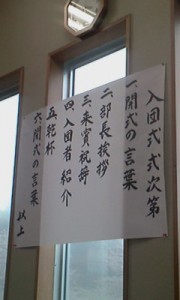 入団式式次第
一、開式の言葉
二、部長挨拶
三、来賓祝辞
四、入団者紹介
五、乾杯
六、閉式の言葉
以上